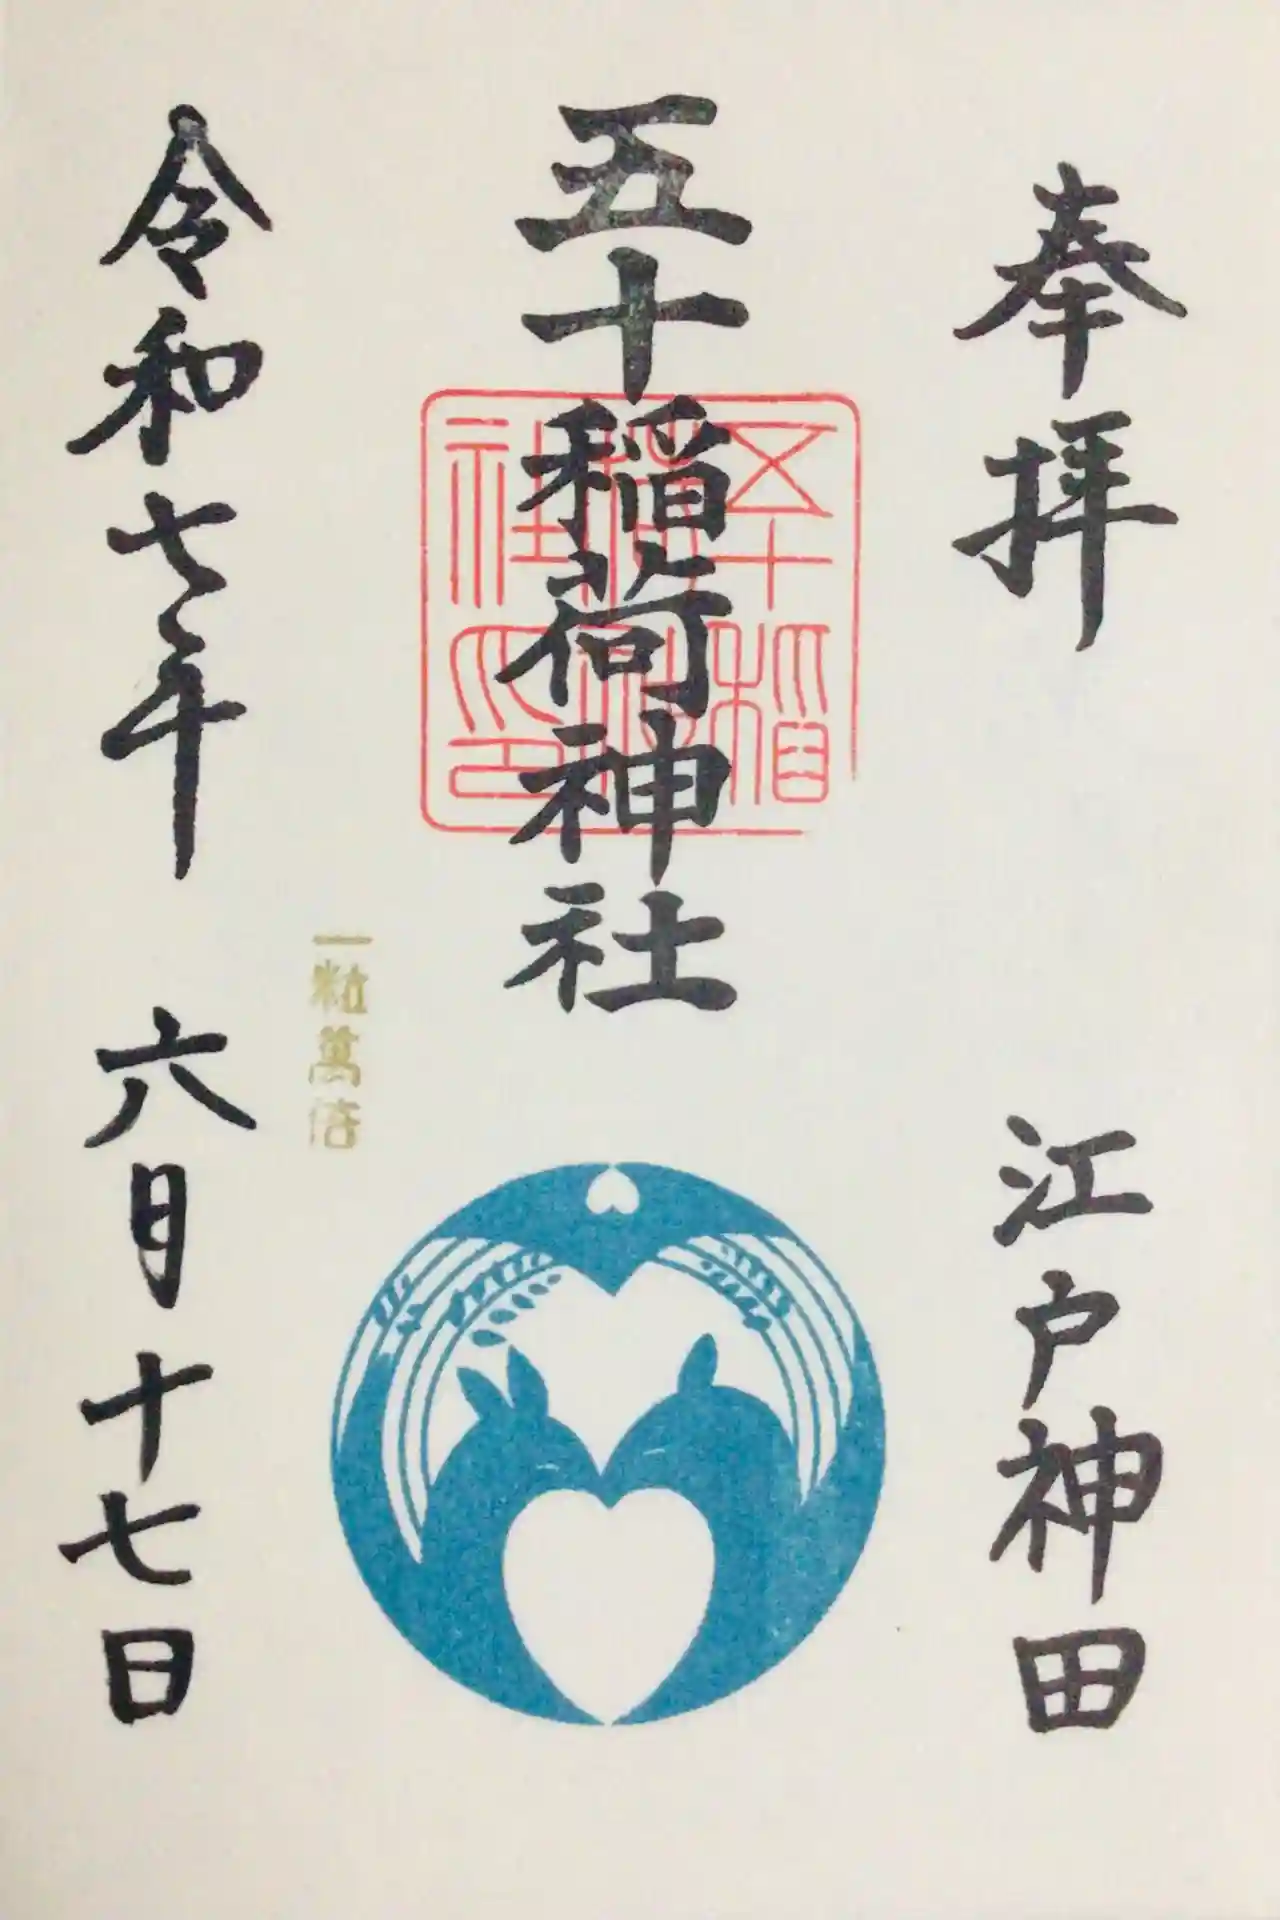 奉拝
江戸神田
五十稲荷神社
五十稲荷神社印
一粒萬倍
令和七年 六月十七日